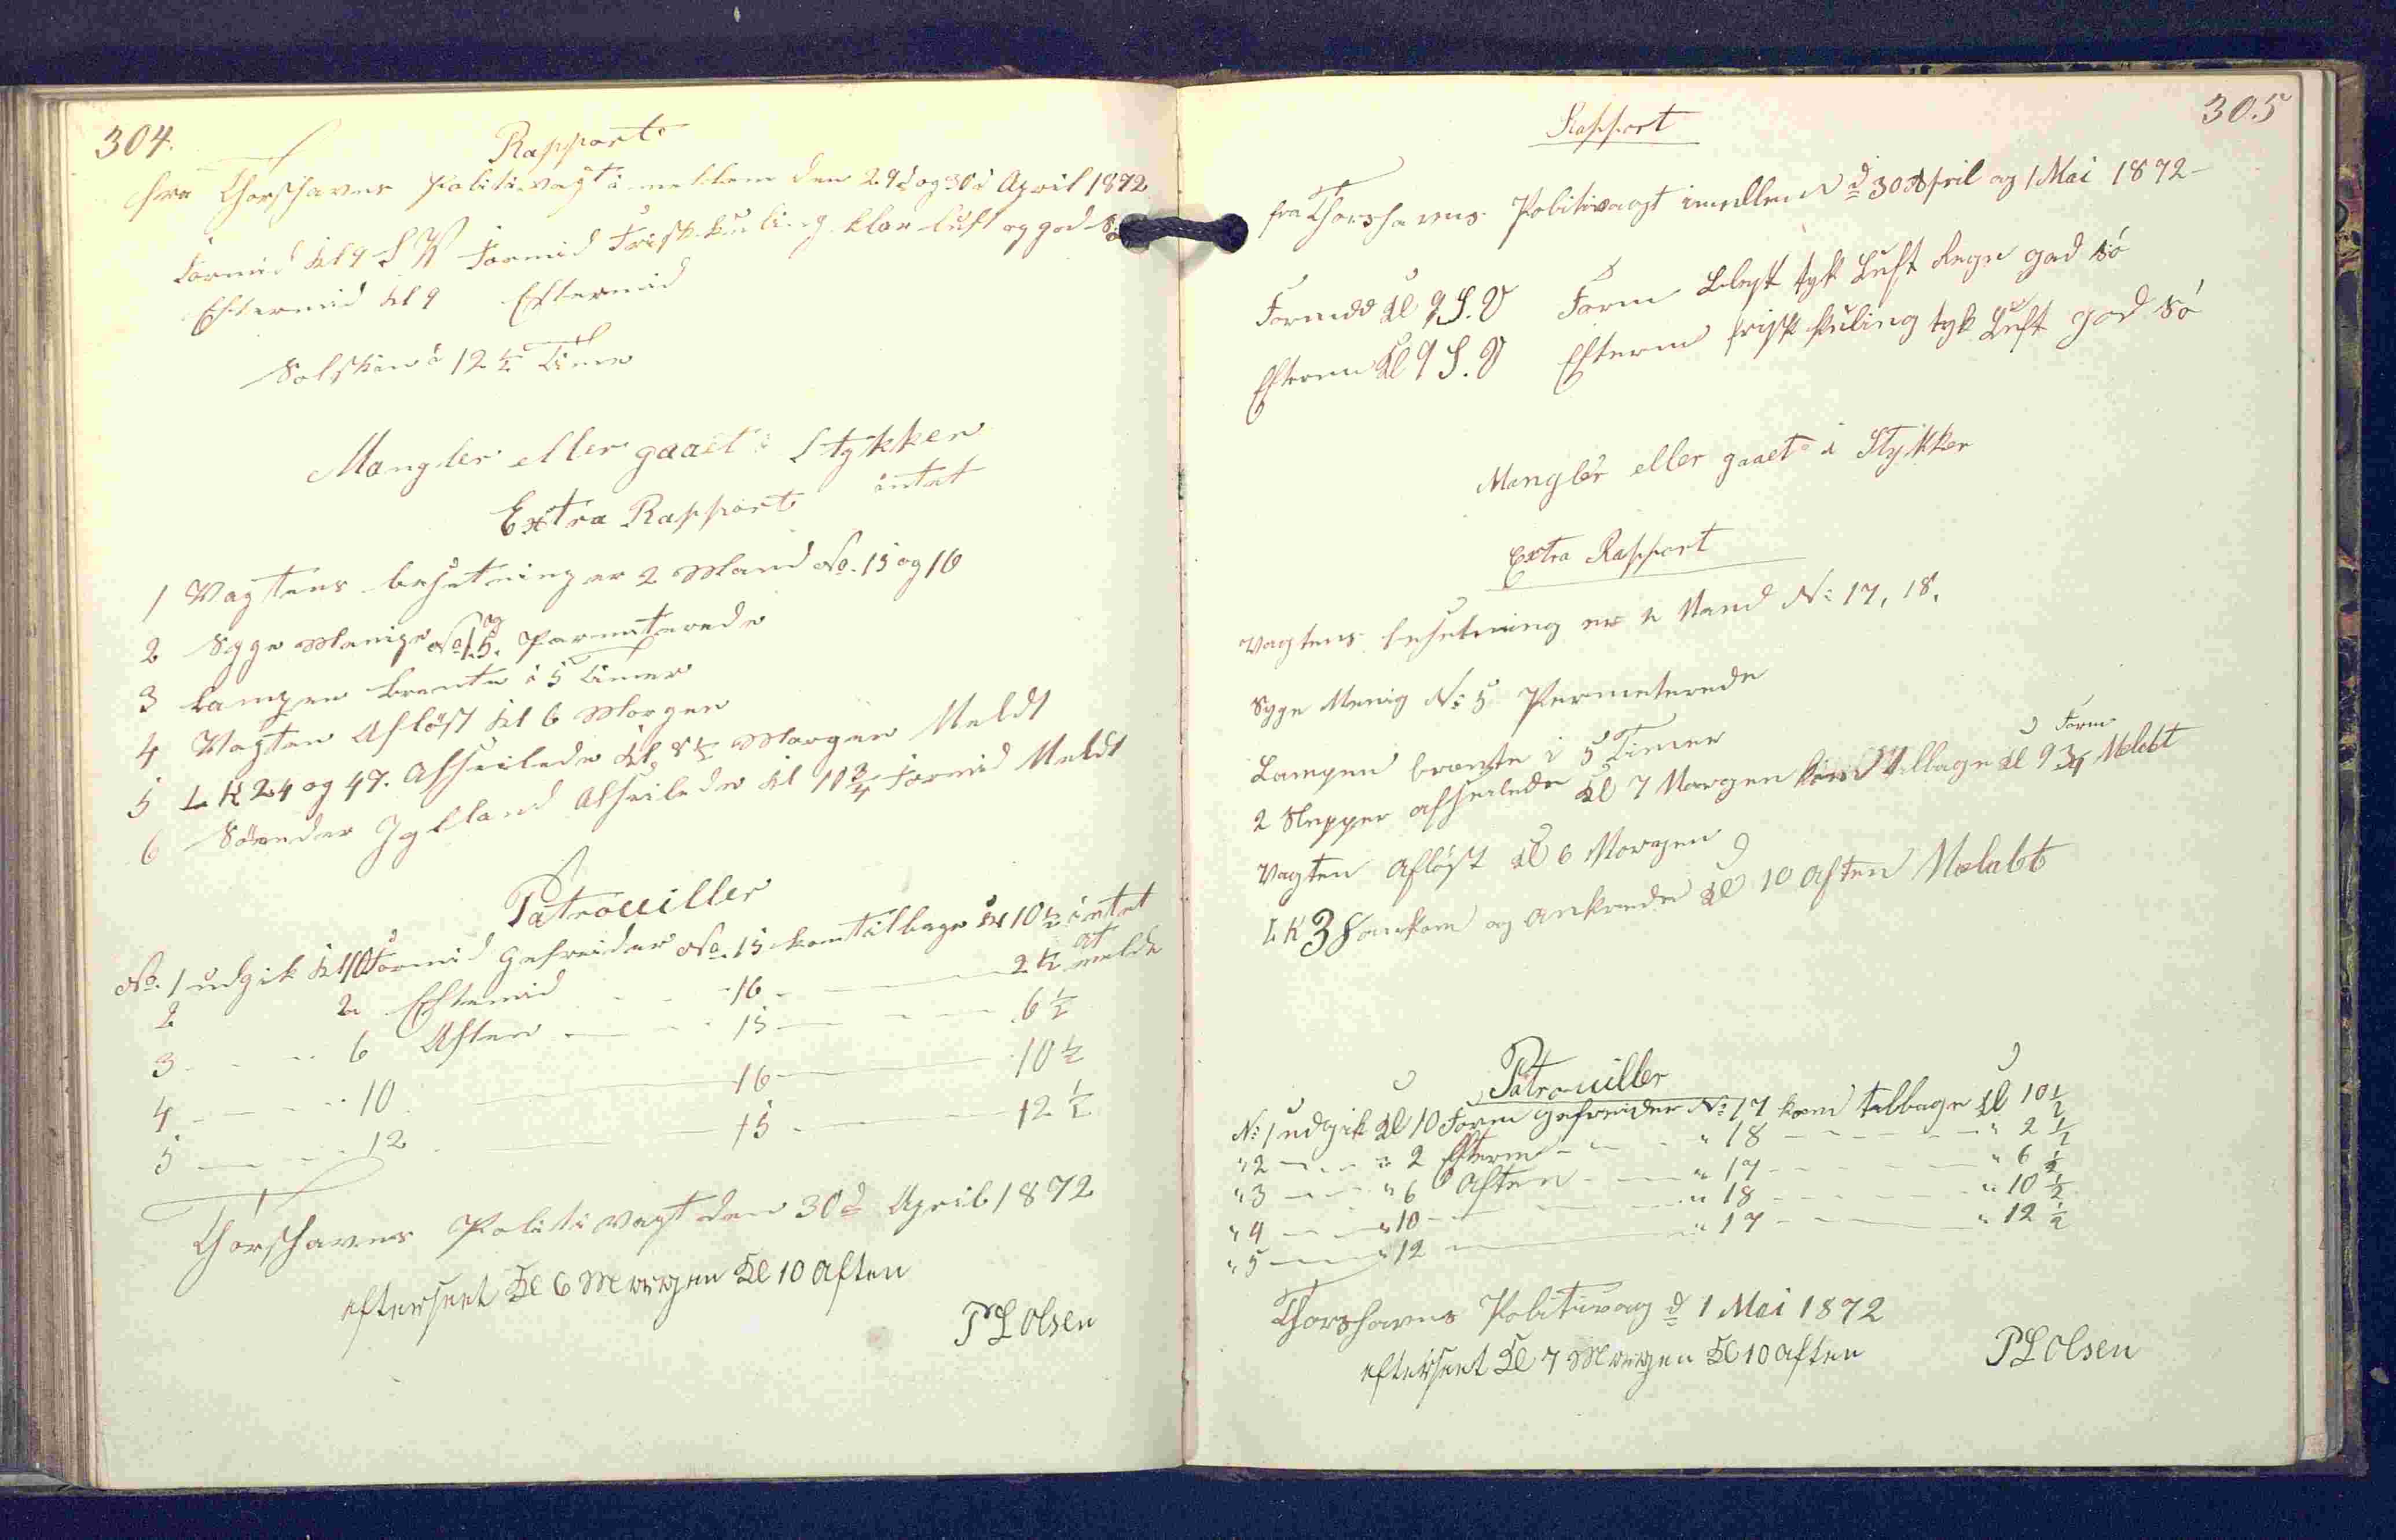 304.
Rapport
fra Thorshavns Politivagt imellem den 29d og 30d April 1872
Formid Kl 9 S V Formid Frisk Kuling klar Luft og god Sö
Eftermid Kl 9 Eftermid
Solskin i 12 ½ Time
Mangler eller gaaet i Stykker
intet
Extra Rapport
1 Vagtens besetning er 2 Mand No. 15 og 16
2 Syge Menige No 1 og 5. Parmeterede
3 Lampen brente i 5 Timer
4 Vagten Aflöst Kl 6 Morgen
5 L K 24 og 47. Afseilede Kl 8½ Morgen Meldt
6 Sönder Jylland Afseilede Kl 11¾ Formid Meldt
Patrouiller
No. 1 udgik Kl 10 Formid Gefreider No. 15 kom tilbage Kl 10½ intet
2 2 Eftemid - - - 16 - - 2½ at melde
3 - - - 6 Aften - - - 15 - - - 6½
4 - - - 10 - - 16 - - 10½
5 - - - 12 - - 15 - - 12½
Thorshavns Politivagt den 30d April 1872
efterseet Kl 6 Morgen Kl 10 Aften
P L Olsen
305
Rapport
fra Thorshavns Politivagt imellem d 30 April og 1 Mai 1872
Formdd Kl 9 S. V Form Blest tyk Luft Regn god Sö
Efterm Kl 9 S. V Efterm frisk Kuling tyk Luft god Sö
Mangler eller gaaet i Stykker
Extra Rapport
Vagtens besetning er 2 Mand No: 17, 18.
Syge Menig No: 5 Permeterede
Lampen brente i 5 Timer
Form
2 Slupper afseilede Kl 7 Morgen kom tilbage Kl 9¾ Melabt
Vagten Aflöst Kl 6 Morgen
L K 38 ankom og ankrede Kl 10 Aften Melabt
Patrouiller
No: 1 udgik Kl 10 Form Gefreider No: 17 kom tilbage Kl 10½
" 2 - - - " 2 Efterm - - - " 18 - - - " 2½
" 3 - - - " 6 Aften - - - " 17 - - - " 6½
" 4 - - - " 10 - - - " 18 - - - " 10½
" 5 - - - " 12 - - - " 17 - - - " 12½
Thorshavns Politivag d 1 Mai 1872
efterseet Kl 7 Morgen Kl 10 Aften
P L Olsen